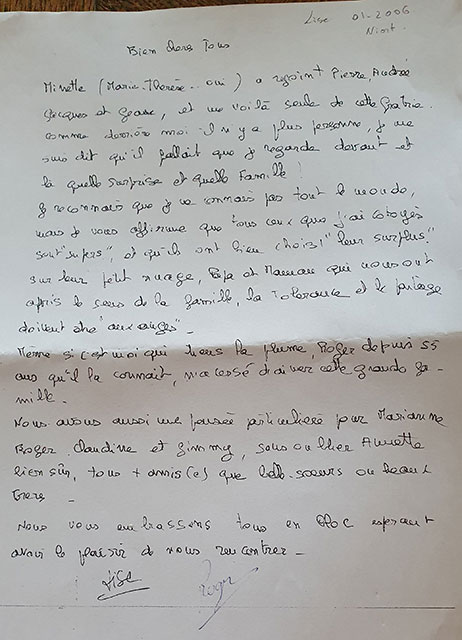 Lise 01-2006
Niort.
Bien chers Tous
Minette (Marie-Thérèse.. oui) a rejoint Pierre André
Jacques et Jeanne, et me voilà seule de cette fratrie.
comme derrière moi il n'y a plus personne, je me
suis dit qu'il fallait que je regarde devant et
là quelle surprise et quelle Famille!
Je reconnais que je ne connais pas tout le monde,
mais je vous affirme que tous ceux que j'ai cotoyés
sont "supers" et qu'ils ont bien choisi "leur surplus"
sur leur petit nuage, Papa et Maman qui nous ont
appris le sens de la famille, la Tolérance et le partage
doivent être "aux anges" -
Même si c'est moi qui tiens la plume, Roger depuis 55
ans qu'il la connait, n'a cessé d'aimer cette grande fa-
mille -
Nous avons aussi une pensée particulière pour Marianne
Roger, Claudine et Gimmy, sans oublier Annette
bien sûr, tous + amis(es) que belle-soeurs ou beaux
frère -
Nous vous embrassons tous en bloc esperant
avoir le plaisir de nous rencontrer -
Lise Roger